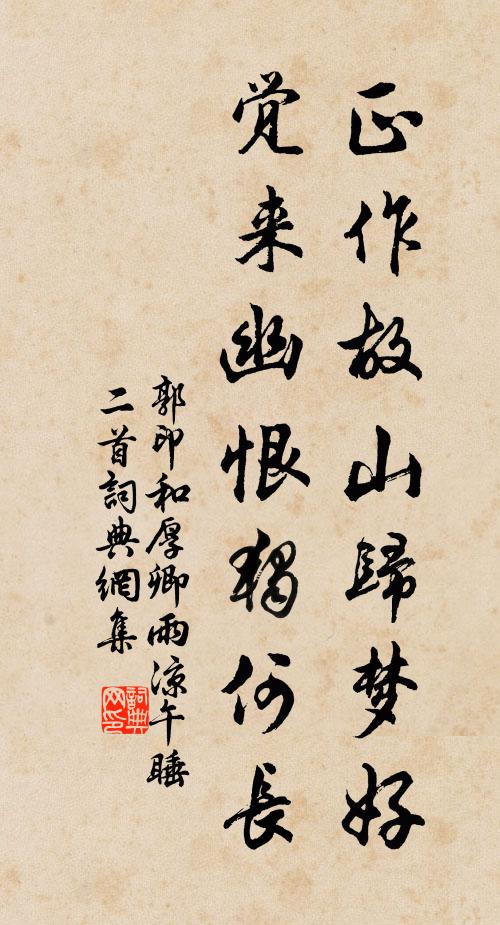 正作故山歸梦好
觉来幽恨獨何長
郭印和厚卿雨凉午睡
二首詞典網集
詞典
网印